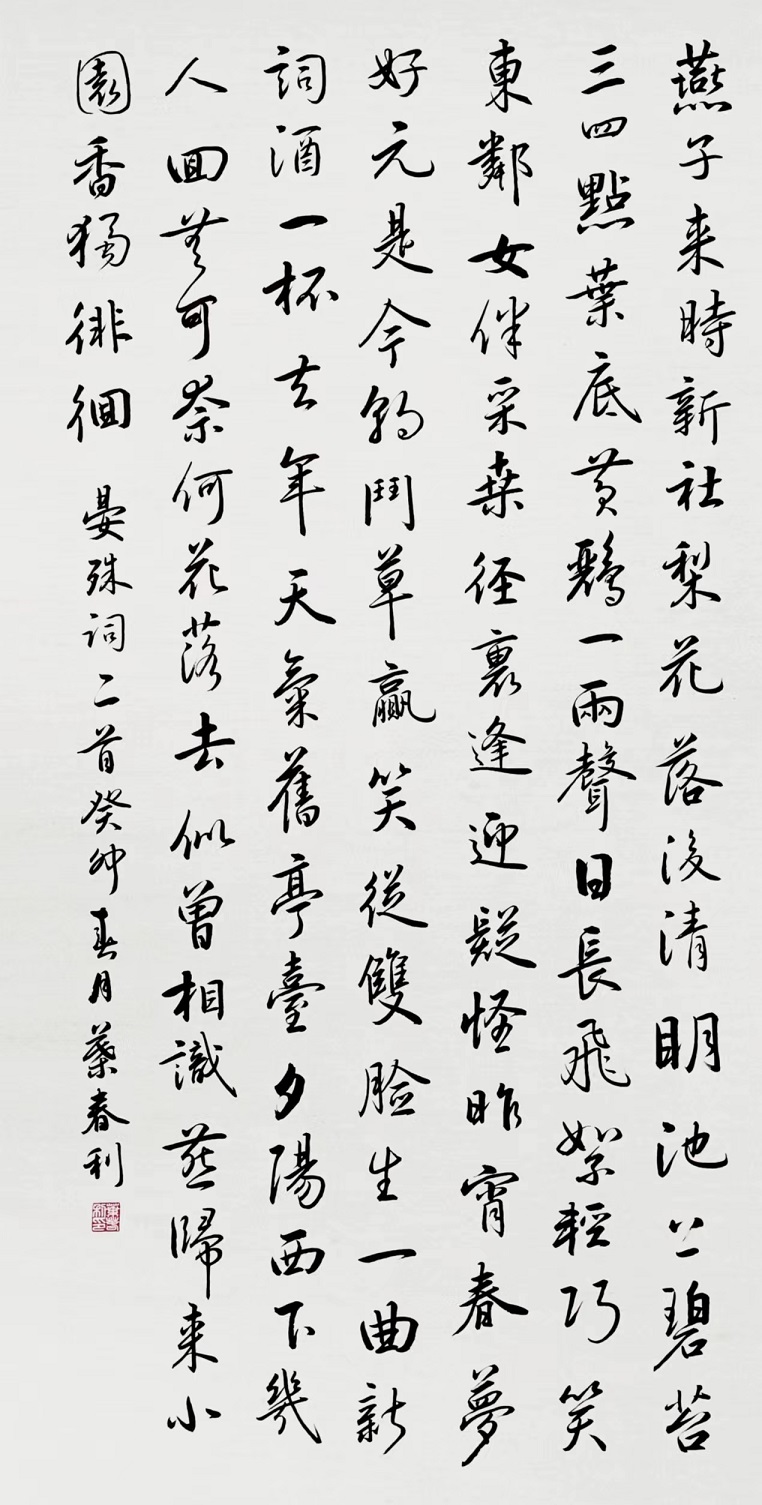 燕子来時新社梨花落後清明池上碧苔
三四點葉底黄鸝一兩聲日長飛絮輕巧笑
東鄰女伴采桒徑裏逢迎疑怪昨宵春夢
好元是今朝鬥草贏笑從雙臉生一曲新
詞酒一杯去年天氣舊亭臺夕陽西下幾
人囬無可奈何花落去似曾相識燕歸来小
園香獨徘徊
晏殊詞二首癸卯春月蔡春利